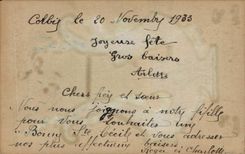 le 20 Novembre 1933
Joyeuse fête
Gros baisers
Chers et sœur
Nous nous joignons à notre fifille
pour vous souhaiter une
Bonne Ste Cécile et vous adresser
nos plus affectueux baisers.
et Charlotte